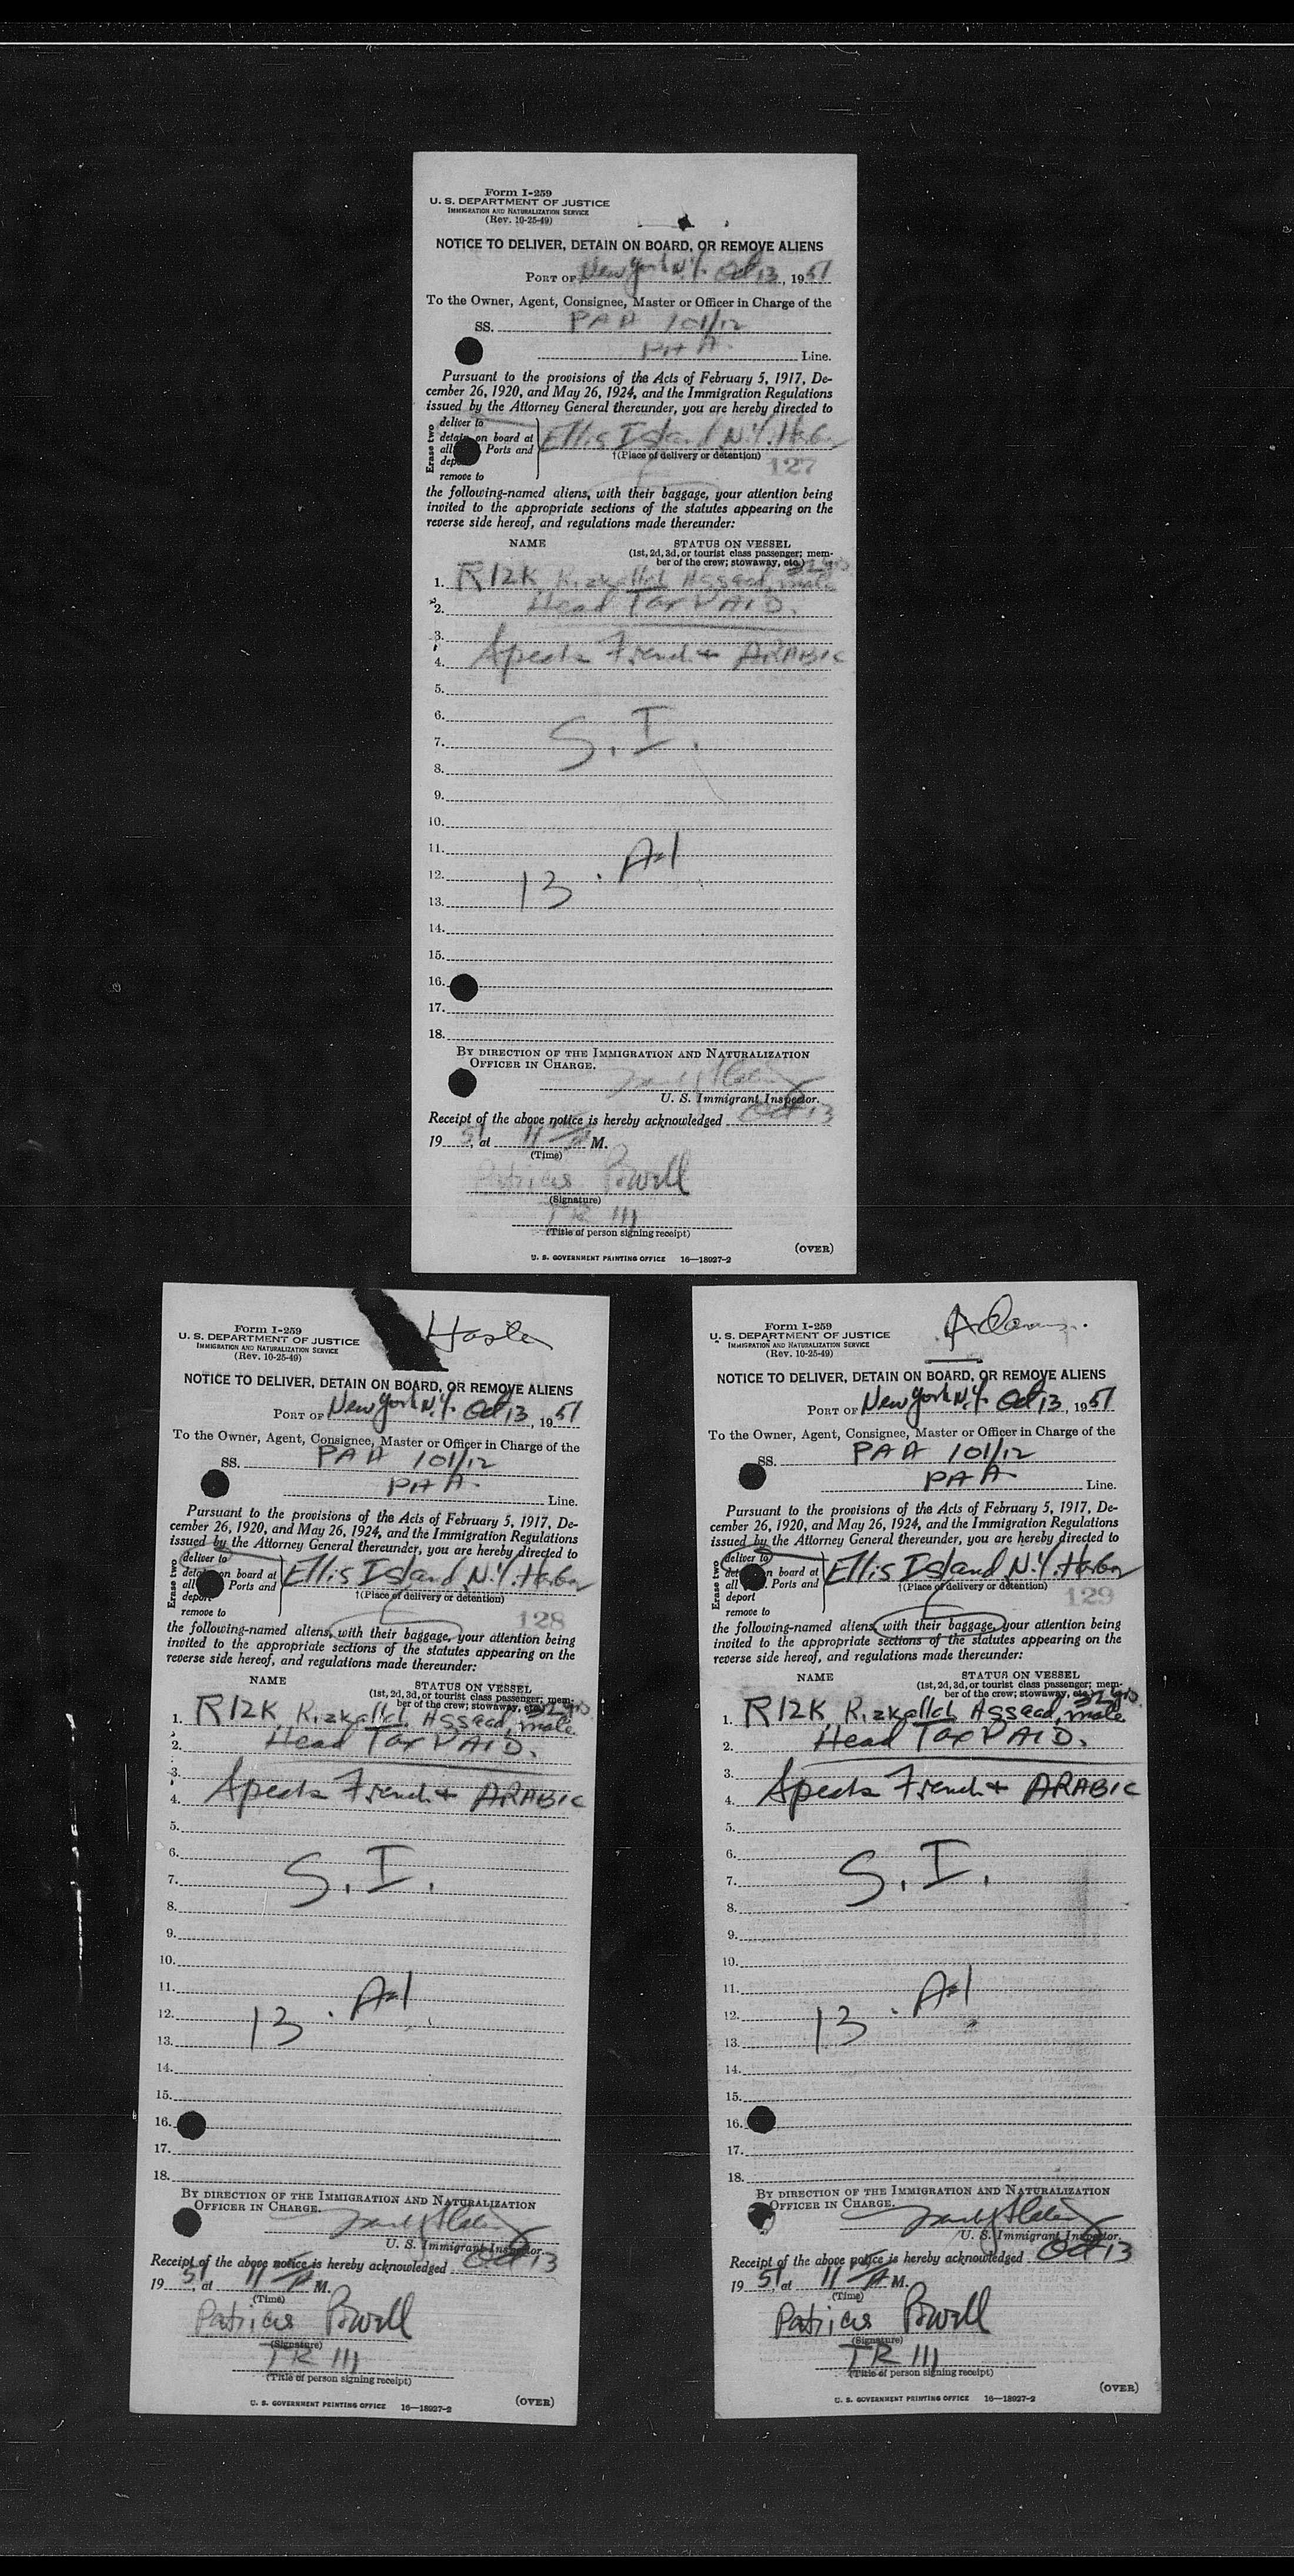 Form I-259
U. S. DEPARTMENT OF JUSTICE
IMMIGRATION AND NATURALIZATION SERVICE
(Rev. 10-25-49)
NOTICE TO DELIVER, DETAIN ON BOARD, OR REMOVE ALIENS
PORT OF New York N.Y. Oct 13, 1951
To the Owner, Agent, Consignee, Master or Officer in Charge of the
SS. PAA 101/12
PAA Line.
Pursuant to the provisions of the Acts of February 5, 1917, De-
cember 26, 1920, and May 26, 1924, and the Immigration Regulations
issued by the Attorney General thereunder, you are hereby directed to
Erase two
deliver to
detain on board at
all Ports and
deport
remove to
Ellis Island, N.Y. Harbor
†(Place of delivery or detention)
127
the following-named aliens, with their baggage, your attention being
invited to the appropriate sections of the statutes appearing on the
reverse side hereof, and regulations made thereunder:
NAME STATUS ON VESSEL
(1st, 2d, 3d, or tourist class passenger; mem-
ber of the crew; stowaway, etc.) 32 yrs
1. RIZK Rizkallah Assaad, male
2. Head Tax PAID.
3.
4. Speaks French + ARABIC
5.
6.
7. S. I.
8.
9.
10.
11. A-1
12. 13
13.
14.
15.
16.
17.
18.
BY DIRECTION OF THE IMMIGRATION AND NATURALIZATION
OFFICER IN CHARGE.
U. S. Immigrant Inspector.
Receipt of the above notice is hereby acknowledged Oct 13
1951, at 11 A M.
(Time)
Patricia Powell
(Signature)
TR III
(Title of person signing receipt)
(OVER)
U. S. GOVERNMENT PRINTING OFFICE 16—18927-2
Form I-259
U. S. DEPARTMENT OF JUSTICE
IMMIGRATION AND NATURALIZATION SERVICE
(Rev. 10-25-49)
NOTICE TO DELIVER, DETAIN ON BOARD, OR REMOVE ALIENS
PORT OF New York N.Y. Oct 13, 1951
To the Owner, Agent, Consignee, Master or Officer in Charge of the
SS. PAA 101/12
PAA Line.
Pursuant to the provisions of the Acts of February 5, 1917, De-
cember 26, 1920, and May 26, 1924, and the Immigration Regulations
issued by the Attorney General thereunder, you are hereby directed to
Erase two
deliver to
detain on board at
all Ports and
deport
remove to
Ellis Island, N.Y. Harbor
†(Place of delivery or detention)
128
the following-named aliens, with their baggage, your attention being
invited to the appropriate sections of the statutes appearing on the
reverse side hereof, and regulations made thereunder:
NAME STATUS ON VESSEL
(1st, 2d, 3d, or tourist class passenger; mem-
ber of the crew; stowaway, etc.) 32 yrs
1. RIZK Rizkallah Assaad, male
2. Head Tax PAID.
3.
4. Speaks French + ARABIC
5.
6.
7. S. I.
8.
9.
10.
11. A-1
12. 13
13.
14.
15.
16.
17.
18.
BY DIRECTION OF THE IMMIGRATION AND NATURALIZATION
OFFICER IN CHARGE.
U. S. Immigrant Inspector.
Receipt of the above notice is hereby acknowledged Oct 13
1951, at 11 A M.
(Time)
Patricia Powell
(Signature)
TR III
(Title of person signing receipt)
(OVER)
U. S. GOVERNMENT PRINTING OFFICE 16—18927-2
Adams.
Form I-259
U. S. DEPARTMENT OF JUSTICE
IMMIGRATION AND NATURALIZATION SERVICE
(Rev. 10-25-49)
NOTICE TO DELIVER, DETAIN ON BOARD, OR REMOVE ALIENS
PORT OF New York N.Y. Oct 13, 1951
To the Owner, Agent, Consignee, Master or Officer in Charge of the
SS. PAA 101/12
PAA Line.
Pursuant to the provisions of the Acts of February 5, 1917, De-
cember 26, 1920, and May 26, 1924, and the Immigration Regulations
issued by the Attorney General thereunder, you are hereby directed to
Erase two
deliver to
detain on board at
all Ports and
deport
remove to
Ellis Island, N.Y. Harbor
†(Place of delivery or detention)
129
the following-named aliens, with their baggage, your attention being
invited to the appropriate sections of the statutes appearing on the
reverse side hereof, and regulations made thereunder:
NAME STATUS ON VESSEL
(1st, 2d, 3d, or tourist class passenger; mem-
ber of the crew; stowaway, etc.) 32 yrs
1. RIZK Rizkallah Assaad, male
2. Head Tax PAID.
3.
4. Speaks French + ARABIC
5.
6.
7. S. I.
8.
9.
10.
11. A-1
12. 13
13.
14.
15.
16.
17.
18.
BY DIRECTION OF THE IMMIGRATION AND NATURALIZATION
OFFICER IN CHARGE.
U. S. Immigrant Inspector.
Receipt of the above notice is hereby acknowledged Oct 13
1951, at 11 A M.
(Time)
Patricia Powell
(Signature)
TR III
(Title of person signing receipt)
(OVER)
U. S. GOVERNMENT PRINTING OFFICE 16—18927-2